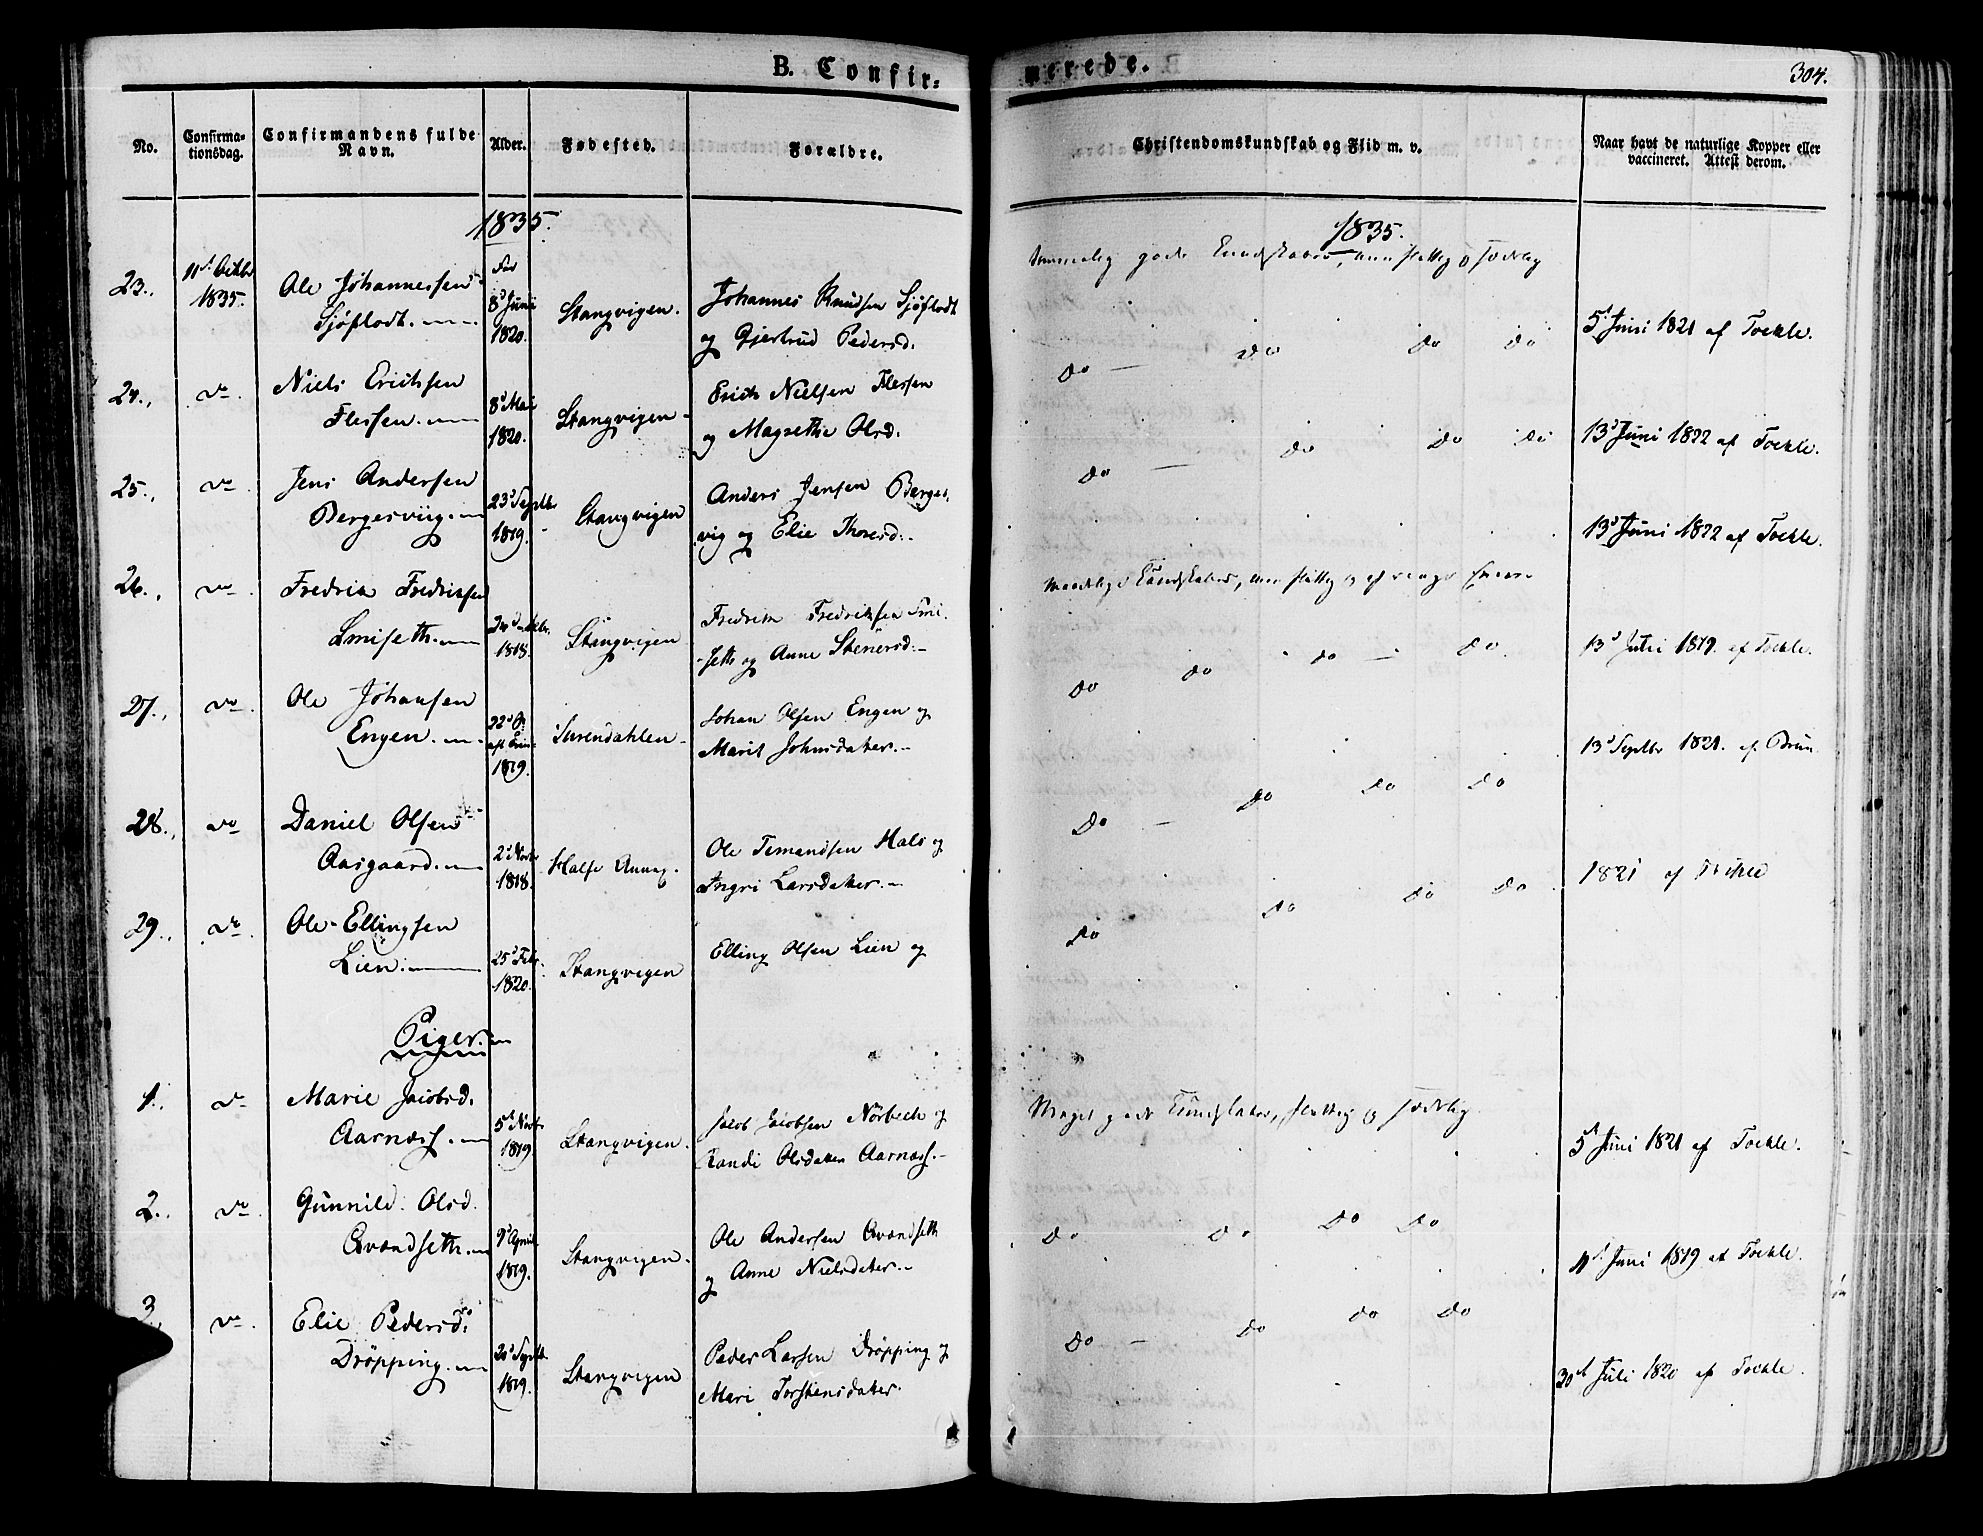 B. Confir-
merede.
304.
No.
Confirma-
tionsdag.
Confirmandens fulde
Navn.
Alder.
Fødested.
Forældre.
Christendomskundskab og Flid m. v.
Naar havt de naturlige Kopper eller
vaccineret. Attest derom.
1835.
1835.
23.
11te Octbr
1835.
Ole Johannessen
Sjøflodt.
Fød
8d Juni
1820.
Stangvigen.
Johannes Knudsen Sjøflodt
og Gjertrud Pedersd.
Temmelig gode Kundskaber, men flittig og sædelig
5t Juni 1821 af Toekle.
24.
do.
Niels Erichsen
Flessen.
8d Mai
1820.
Stangvigen
Erich Nielsen Flessen
og Magrethe Olsd.
do do do do
13d Juni 1822 af Toekle.
25.
do
Jens Andersen
Bergesviig.
23d Septbr
1819.
Stangvigen
Anders Jensen Berges-
vig og Elie Thoresd.
do do do do
13d Juni 1822 af Toekle.
26.
do
Fredrik Fredriksen
Smiseth.
1818.
Stangvigen
Fredrik Fredriksen Smi-
seth og Anne Stenersd.
Maadelige Kundskaber, men flittig og af
13d Juli 1819. af Toekle.
27.
do
Ole Johansen
Engen.
22d
1819.
Surendahlen
Johan Olsen Engen og
Marit Johnsdater.
do do do do
13d Septbr 1821. af Brun
28.
do
Daniel Olsen
Aasgaard.
2d Novbr
1818.
Halse Annex.
Ole Hals og
Ingri Larsdater.
do do do do
1821 af Toekle
29.
do.
Ole Ellingsen
Lien.
25d Febr.
1820.
Stangvigen
Elling Olsen Lien og
do do do do
Piger.
1.
do
Marie Jacobsd.
Aarnæss.
5d Novbr
1819
Stangvigen.
Jacob Jacobsen Norbech og
Randi Olsdater Aarnæss.
Meget gode Kundskaber, flittig og sædelig
5t Juni 1821 af Toekle.
2.
do.
Gunnild Olsd.
Qvandseth.
9d April
1819.
Stangvigen.
Ole Andersen Qvandseth
og Anne Nielsdater.
do do do do
11t Juni 1819 af Toekle.
3
do.
Elie Pedersd.
Drøpping.
20d Septbr
1819.
Stangvigen
Peder Larsen Drøpping og
Mari Torstensdater.
do do do do
30t Juli 1820 af Toekle.